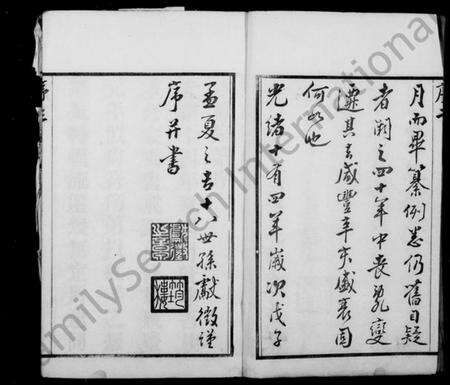 月而畢纂例悉仍舊自疑
者闕之四十年中喪亂變
遷其去咸豐辛亥盛衰固
何如也
光緒十有四年歲次戊子
孟夏之吉十八世孫獻徵謹
序并書
序二
序三
FamilySearch International